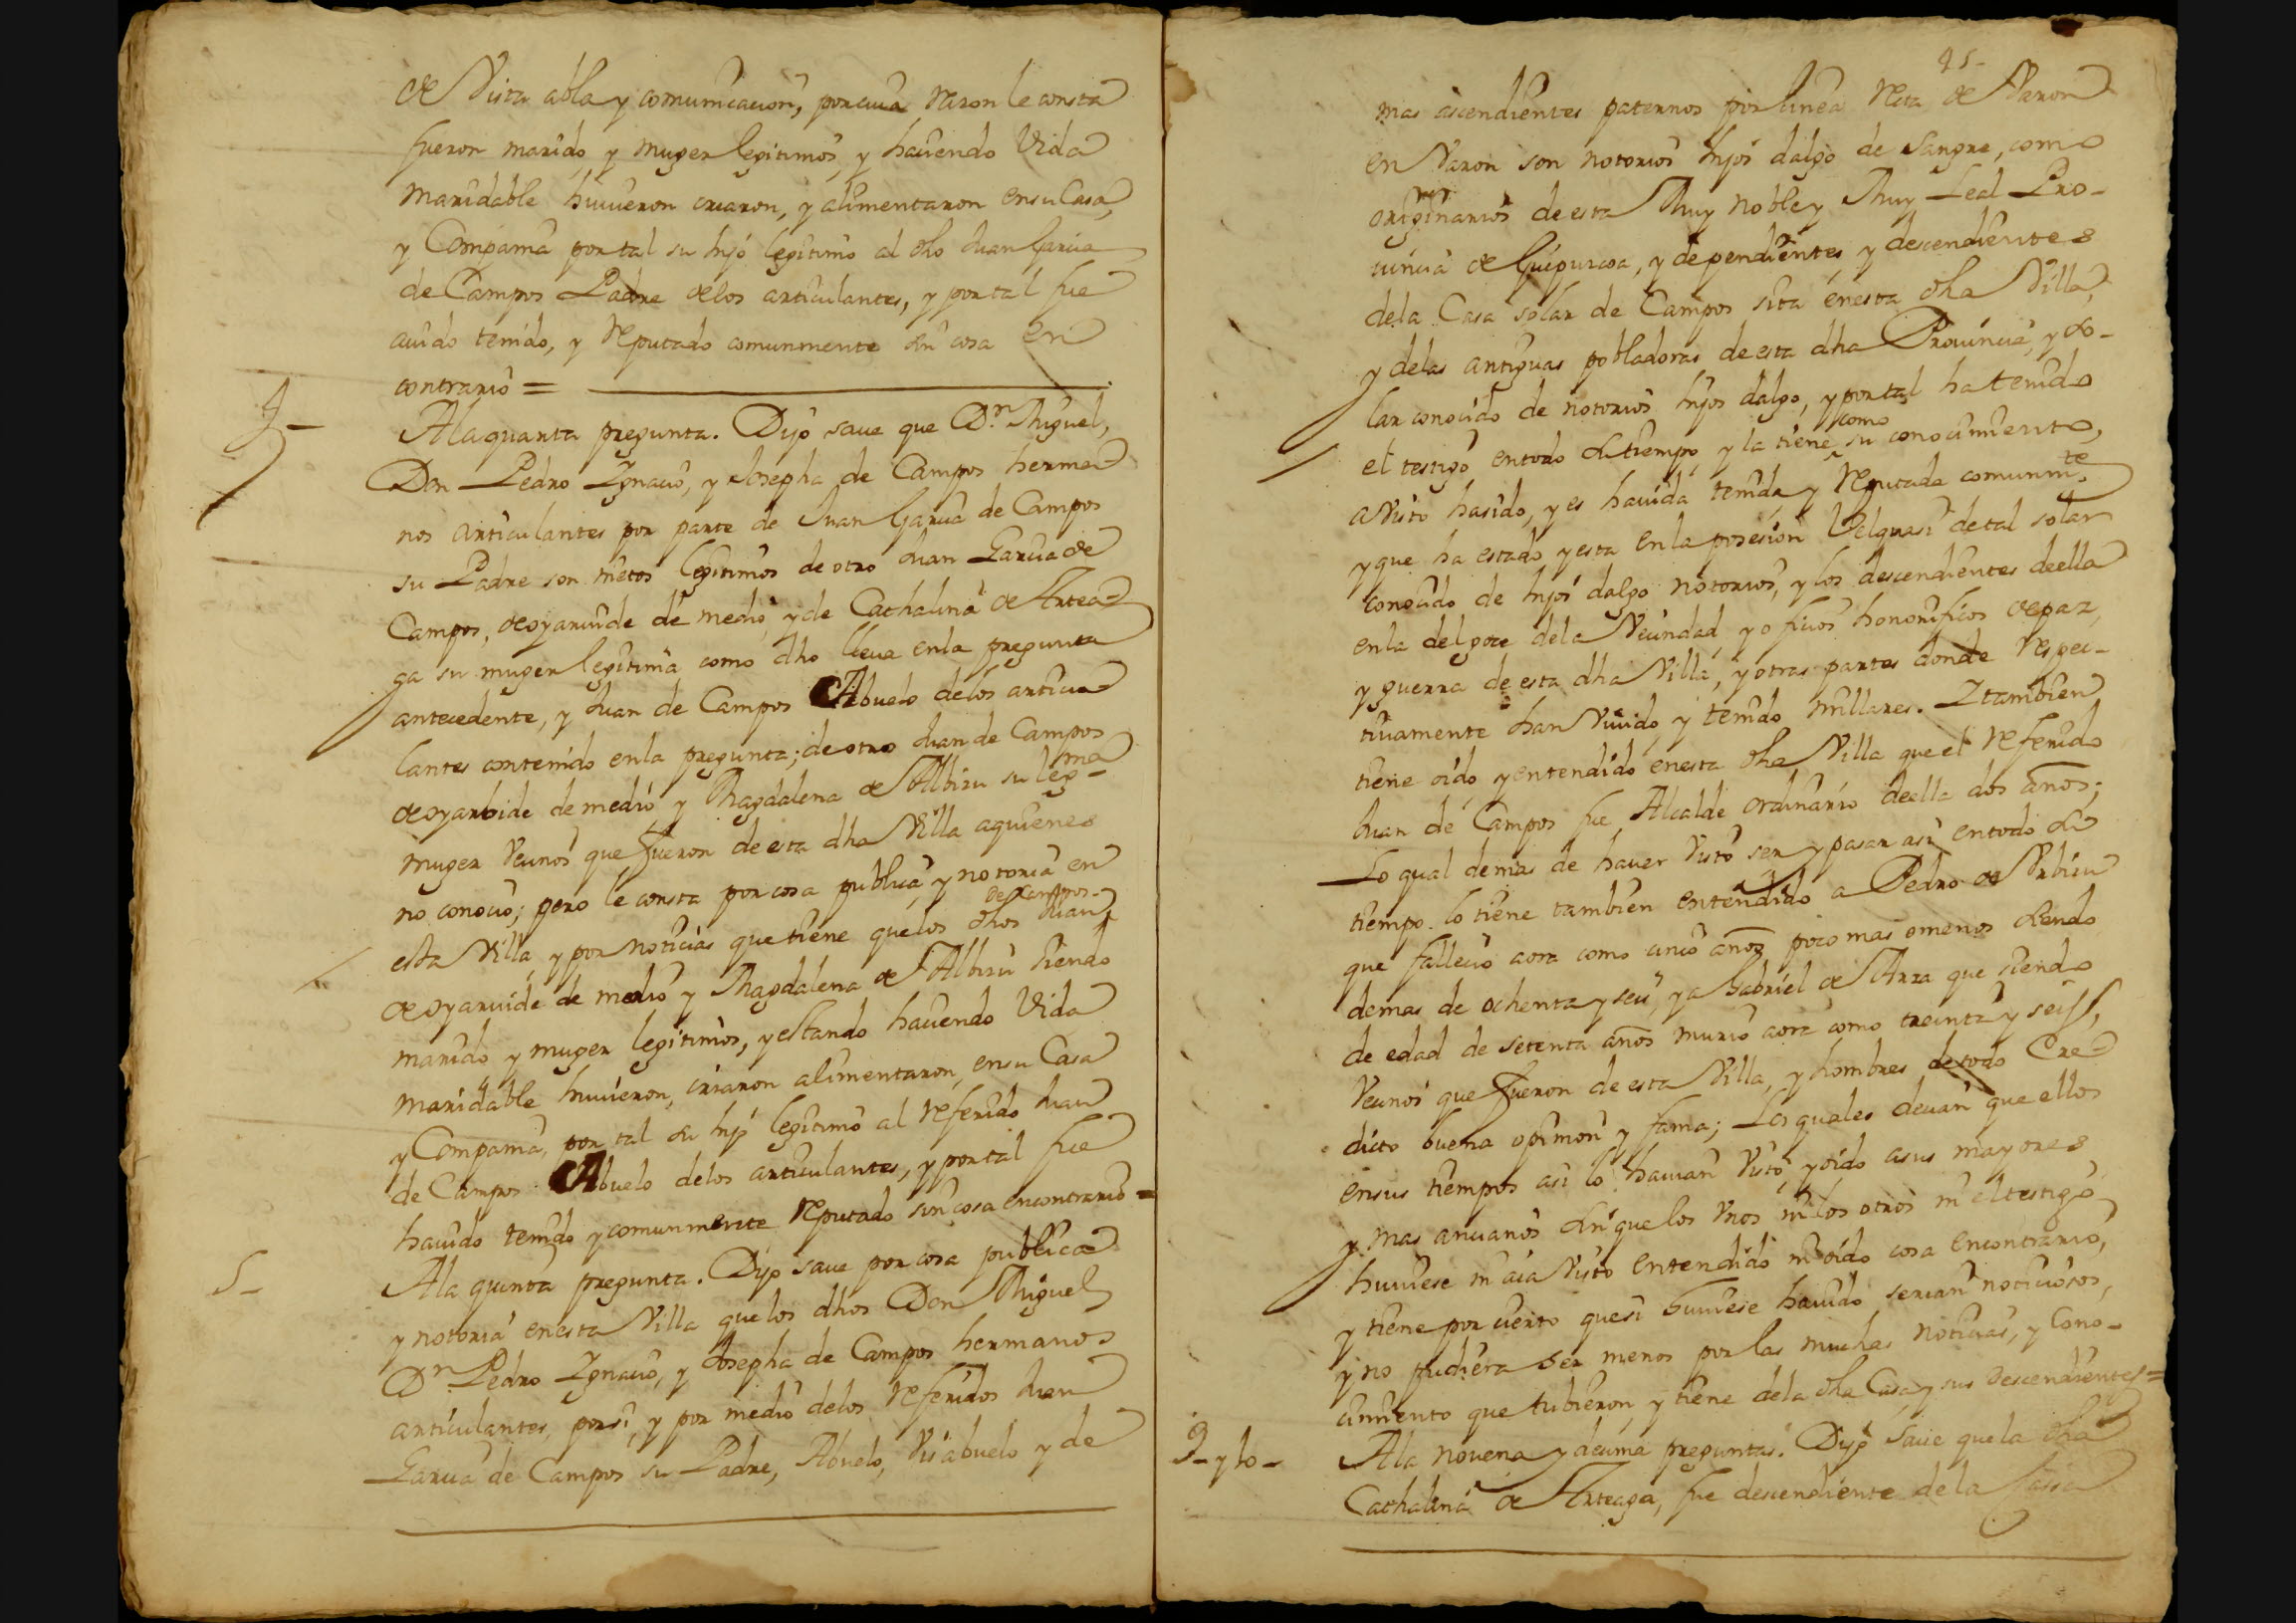 de Vista abla y comunicacion, por cuia Razon le consta
fueron marido, y muger legitimos, y haciendo Vida
Maridable huuieron criaron, y alimentaron en su Casa,
y Compania por tal su hijo legitimo al dho Juan Garcia
de Campos Padre de los articulantes, y por tal fue
auido tenido, y Reputado comunmente sin cosa en
contrario =
4-
A la quarta pregunta. Dijo saue que Dn. Miguel,
Don Pedro Ygnacio, y Josepha de Campos herma-
nos articulantes por parte de Juan Garcia de Campos
su Padre son nietos legitimos de otro Juan Garcia de
Campos, de oyaruide de medio, y de Cathalina de Artea-
ga su muger legitima, como dho lleua en la pregunta
antecedente, y Juan de Campos Abuelo de los articu-
lantes contenido en la pregunta; de otro Juan de Campos
de oyarbide de medio, y Magdalena de Albisu su legma
muger Vecinos que fueron de esta dha Villa a quienes
no conocio; pero le consta por cosa publica, y notoria en
de Campos-
esta Villa, y por noticias que tiene que los dhos Juan
de oyaruide de medio y Magdalena de Albisu siendo
marido y muger legitimos, y estando haciendo Vida
maridable huuieron, criaron alimentaron, en su Casa
y Compania, por tal su hijo legitimo al referido Juan
de Campos Abuelo de los articulantes, y por tal fue
hauido tenido y comunmente Reputado sin cosa en contrario =
5-
A la quinta pregunta. Dijo saue por cosa publica
y notoria en esta Villa que los dhos Don Miguel
Dn. Pedro Ygnacio, y Josepha de Campos hermanos
articulantes, por si, y por medio de los Referidos Juan
Garcia de Campos su Padre, Abuelo, Visabuelo y de
45-
mas ascendientes paternos por linea Recta de Varon
en Varon son notorios hijos dalgo de sangre, como
originarios de esta Muy Noble y Muy Leal Pro-
uincia de Guipuzcoa, y dependientes y descendientes
de la Casa solar de Campos sita en esta dha Villa,
y de las antiguas pobladoras de esta dha Prouincia, y so-
lar conocido de notorios hijos dalgo, y por tal ha tenido
como
el testigo en todo su tiempo, y la tiene su conocimiento,
a Visto ha sido, y es hauida tenida, y Reputada comunmte.
y que ha estado y esta en la posesion Vel quasi de tal solar
conocido de hijos dalgo notorios, y los descendientes de ella
en la del goze de la Vecindad, y oficios honorificos de paz,
y guerra de esta dha Villa, y otras partes donde Respec-
tiuamente han Viuido, y tenido millares. Y tambien
tiene oido y entendido en esta dha Villa que el Referido
Juan de Campos fue Alcalde ordinario de ella dos años;
Lo qual demas de hauer Visto ser y pasar asi en todo su
tiempo lo tiene tambien entendido a Pedro de Vrbisu
que fallecio aora como cinco años poco mas o menos siendo
de mas de ochenta y seis, y a Gabriel de Arza que siendo
de edad de setenta años murio aora como treinta y seis,
Vecinos que fueron de esta Villa, y hombres de todo Cre-
dicto buena opinion y fama; Los quales decian que ellos
en sus tiempos asi lo hauian Visto, y oido a sus mayores
y mas ancianos sin que los Vnos ni los otros ni el testigo
huuiese ni aia Visto entendido ni oido cosa en contrario,
y tiene por cierto que si huuiese hauido serian noticiosos,
y no pudiera ser menos por las muchas noticias, y Cono-
cimiento que tubieron y tiene de la dha Casa y sus descendientes =
9- y 10-
A la novena y decima preguntas. Dijo saue que la dha
Cathalina de Arteaga, fue descendiente de la Cassa